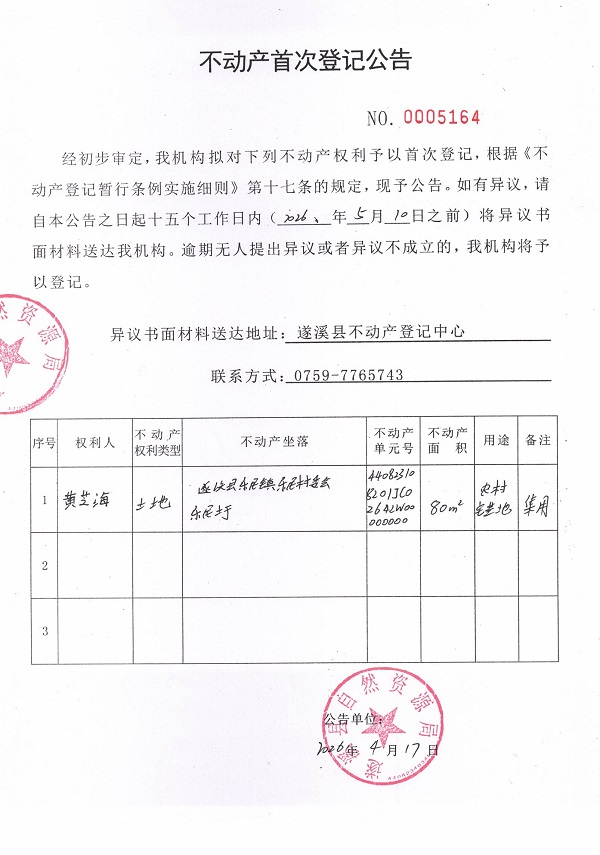 不动产首次登记公告
NO. 0005164
经初步审定，我机构拟对下列不动产权利予以首次登记，根据《不
动产登记暂行条例实施细则》第十七条的规定，现予公告。如有异议，请
自本公告之日起十五个工作日内（2026、年5月10日之前）将异议书
面材料送达我机构。逾期无人提出异议或者异议不成立的，我机构将予
以登记。
然资源局
异议书面材料送达地址：遂溪县不动产登记中心
联系方式：0759-7765743
序号 权利人 不动产权利类型 不动产坐落 不动产单元号 不动产面积 用途 备注
1 黄芝海 土地 遂溪县乐民镇乐民村委会
乐民圩
44082310
8201JC0
264LW00
000000
80m² 农村
宅基地 集用
2
3
遂溪县自然资源局
公告单位：
2026年4月17日